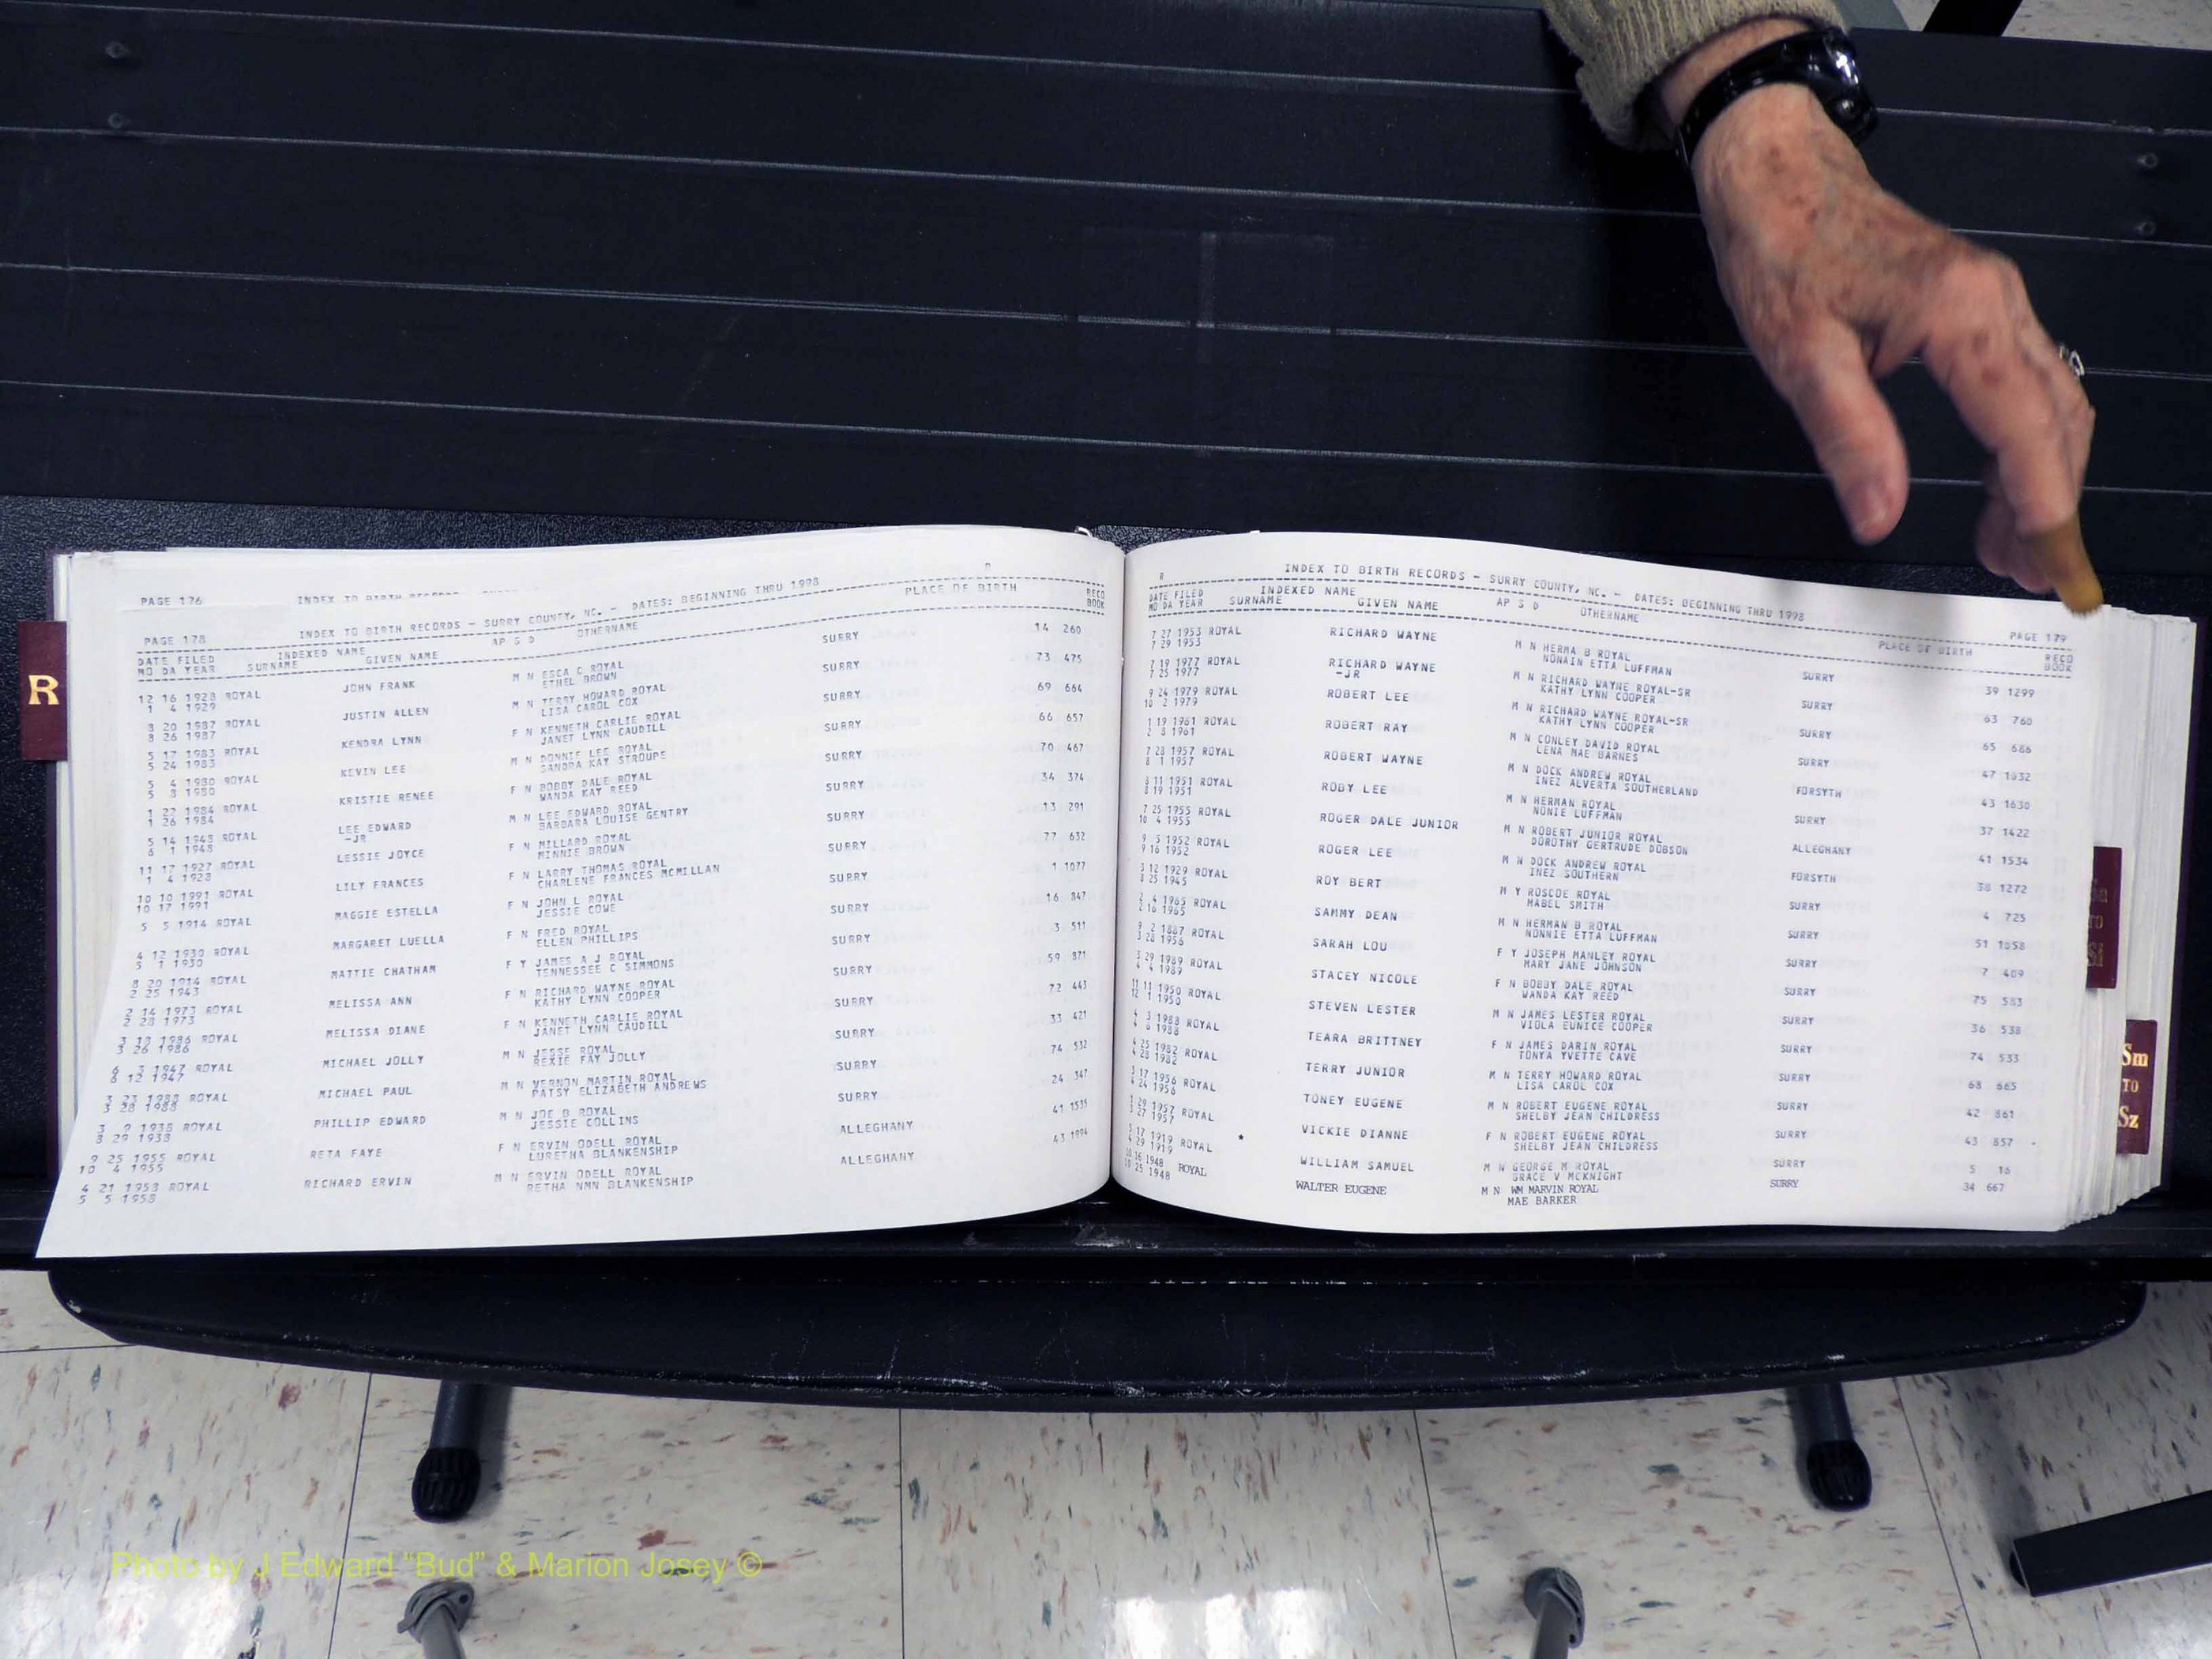 R
PAGE 176 INDEX TO BIRTH RECORDS
R
PAGE 178 INDEX TO BIRTH RECORDS - SURRY COUNTY, NC. - DATES: BEGINNING THRU 1998
DATE FILED INDEXED NAME AP S D OTHERNAME PLACE OF BIRTH RECD
MO DA YEAR SURNAME GIVEN NAME BOOK
12 16 1928 ROYAL JOHN FRANK M N ESCA C ROYAL SURRY 14 260
1 4 1929 ETHEL BROWN
8 20 1987 ROYAL JUSTIN ALLEN M N TERRY HOWARD ROYAL SURRY 73 475
8 26 1987 LISA CAROL COX
5 17 1983 ROYAL KENDRA LYNN F N KENNETH CARLIE ROYAL SURRY 69 664
5 24 1983 JANET LYNN CAUDILL
5 4 1980 ROYAL KEVIN LEE M N DONNIE LEE ROYAL SURRY 66 657
5 8 1980 SANDRA KAY STROUPE
1 22 1984 ROYAL KRISTIE RENEE F N BOBBY DALE ROYAL SURRY 70 467
1 26 1984 WANDA KAY REED
5 14 1948 ROYAL LEE EDWARD M N LEE EDWARD ROYAL SURRY 34 374
6 1 1948 -JR BARBARA LOUISE GENTRY
11 17 1927 ROYAL LESSIE JOYCE F N MILLARD ROYAL SURRY 13 291
1 4 1928 MINNIE BROWN
10 10 1991 ROYAL LILY FRANCES F N LARRY THOMAS ROYAL SURRY 77 632
10 17 1991 CHARLENE FRANCES MCMILLAN
5 5 1914 ROYAL MAGGIE ESTELLA F N JOHN L ROYAL SURRY 1 1077
JESSIE COWE
4 12 1930 ROYAL MARGARET LUELLA F N FRED ROYAL SURRY 16 847
5 1 1930 ELLEN PHILLIPS
8 20 1914 ROYAL MATTIE CHATHAM F Y JAMES A J ROYAL SURRY 3 511
2 25 1943 TENNESSEE C SIMMONS
2 14 1973 ROYAL MELISSA ANN F N RICHARD WAYNE ROYAL SURRY 59 871
2 28 1973 KATHY LYNN COOPER
3 18 1986 ROYAL MELISSA DIANE F N KENNETH CARLIE ROYAL SURRY 72 443
3 26 1986 JANET LYNN CAUDILL
6 3 1947 ROYAL MICHAEL JOLLY M N JESSE ROYAL SURRY 33 421
6 12 1947 REXIE FAY JOLLY
3 23 1988 ROYAL MICHAEL PAUL M N VERNON MARTIN ROYAL SURRY 74 532
3 28 1988 PATSY ELIZABETH ANDREWS
3 9 1938 ROYAL PHILLIP EDWARD M N JOE B ROYAL SURRY 24 347
8 29 1938 JESSIE COLLINS
9 25 1955 ROYAL RETA FAYE F N ERVIN ODELL ROYAL ALLEGHANY 41 1535
10 4 1955 LURETHA BLANKENSHIP
4 21 1958 ROYAL RICHARD ERVIN M N ERVIN ODELL ROYAL ALLEGHANY 43 1894
5 5 1958 RETHA NMN BLANKENSHIP
R INDEX TO BIRTH RECORDS - SURRY COUNTY, NC. - DATES: BEGINNING THRU 1998 PAGE 179
DATE FILED INDEXED NAME AP S D OTHERNAME PLACE OF BIRTH RECD
MO DA YEAR SURNAME GIVEN NAME BOOK
7 27 1953 ROYAL RICHARD WAYNE M N HERMA B ROYAL SURRY 39 1299
7 29 1953 NONAIN ETTA LUFFMAN
7 19 1977 ROYAL RICHARD WAYNE M N RICHARD WAYNE ROYAL-SR SURRY 63 760
7 25 1977 -JR KATHY LYNN COOPER
9 24 1979 ROYAL ROBERT LEE M N RICHARD WAYNE ROYAL-SR SURRY 65 686
10 2 1979 KATHY LYNN COOPER
1 19 1961 ROYAL ROBERT RAY M N CONLEY DAVID ROYAL SURRY 47 1632
2 8 1961 LENA MAE BARNES
7 28 1957 ROYAL ROBERT WAYNE M N DOCK ANDREW ROYAL FORSYTH 43 1630
8 1 1957 INEZ ALVERTA SOUTHERLAND
8 11 1951 ROYAL ROBY LEE M N HERMAN ROYAL SURRY 37 1422
8 19 1951 NONIE LUFFMAN
7 25 1955 ROYAL ROGER DALE JUNIOR M N ROBERT JUNIOR ROYAL ALLEGHANY 41 1534
10 4 1955 DOROTHY GERTRUDE DOBSON
9 5 1952 ROYAL ROGER LEE M N DOCK ANDREW ROYAL FORSYTH 38 1272
9 16 1952 INEZ SOUTHERN
3 12 1929 ROYAL ROY BERT M Y ROSCOE ROYAL SURRY 4 725
8 25 1945 MABEL SMITH
2 4 1965 ROYAL SAMMY DEAN M N HERMAN B ROYAL SURRY 51 1658
2 16 1965 NONNIE ETTA LUFFMAN
9 2 1887 ROYAL SARAH LOU F Y JOSEPH MANLEY ROYAL SURRY 7 409
3 28 1956 MARY JANE JOHNSON
3 29 1989 ROYAL STACEY NICOLE F N BOBBY DALE ROYAL SURRY 75 583
4 4 1989 WANDA KAY REED
11 11 1950 ROYAL STEVEN LESTER M N JAMES LESTER ROYAL SURRY 36 538
12 1 1950 VIOLA EUNICE COOPER
4 3 1988 ROYAL TEARA BRITTNEY F N JAMES DARIN ROYAL SURRY 74 533
4 6 1988 TONYA YVETTE CAVE
4 25 1982 ROYAL TERRY JUNIOR M N TERRY HOWARD ROYAL SURRY 68 665
4 28 1982 LISA CAROL COX
3 17 1956 ROYAL TONEY EUGENE M N ROBERT EUGENE ROYAL SURRY 42 861
4 24 1956 SHELBY JEAN CHILDRESS
1 29 1957 ROYAL VICKIE DIANNE F N ROBERT EUGENE ROYAL SURRY 43 857
3 27 1957 SHELBY JEAN CHILDRESS
5 17 1919 ROYAL * WILLIAM SAMUEL M N GEORGE M ROYAL SURRY 5 16
4 29 1919 GRACE V MCKNIGHT
10 16 1948 ROYAL WALTER EUGENE M N WM MARVIN ROYAL SURRY 34 667
10 25 1948 MAE BARKER
TO
Sm
TO
Sz
Photo by J Edward “Bud” & Marion Josey ©